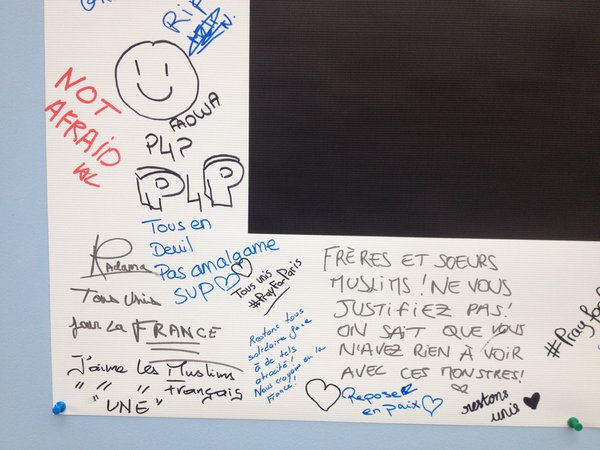 RIP
N.
NOT
AFRAID
FADWA
P4P
P4P
Tous en
Deuil
Pas amalgame
SUP
Radama
Tous Unis
pour La FRANCE
J'aime Les Muslims
" " " français
" UNE "
Tous unis
#PrayForParis
Restons tous
solidaire face
à de tels
atrocité!
Nous croyons en la
France!
FRÈRES ET SOEURS
MUSLIMS! NE VOUS
JUSTIFIEZ PAS!
ON SAIT QUE VOUS
N'AVEZ RIEN À VOIR
AVEC CES MONSTRES!
#Prayfo
Reposez
en paix
restons
unie